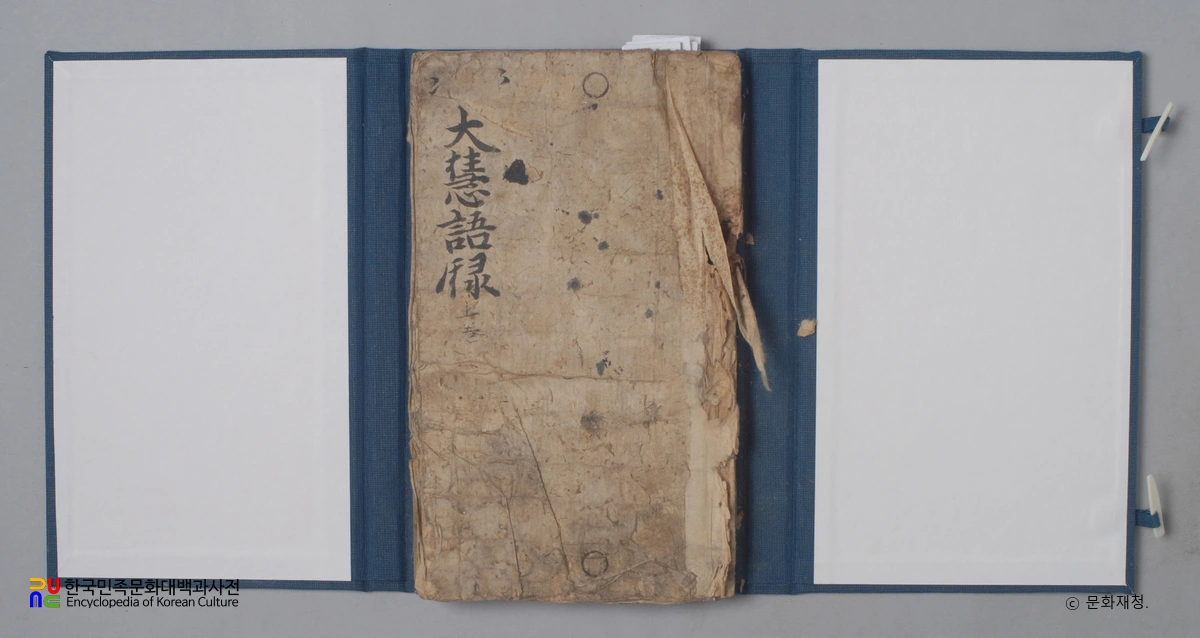 大慧語録
上巻
한국민족문화대백과사전
Encyclopedia of Korean Culture
ⓒ 문화재청.